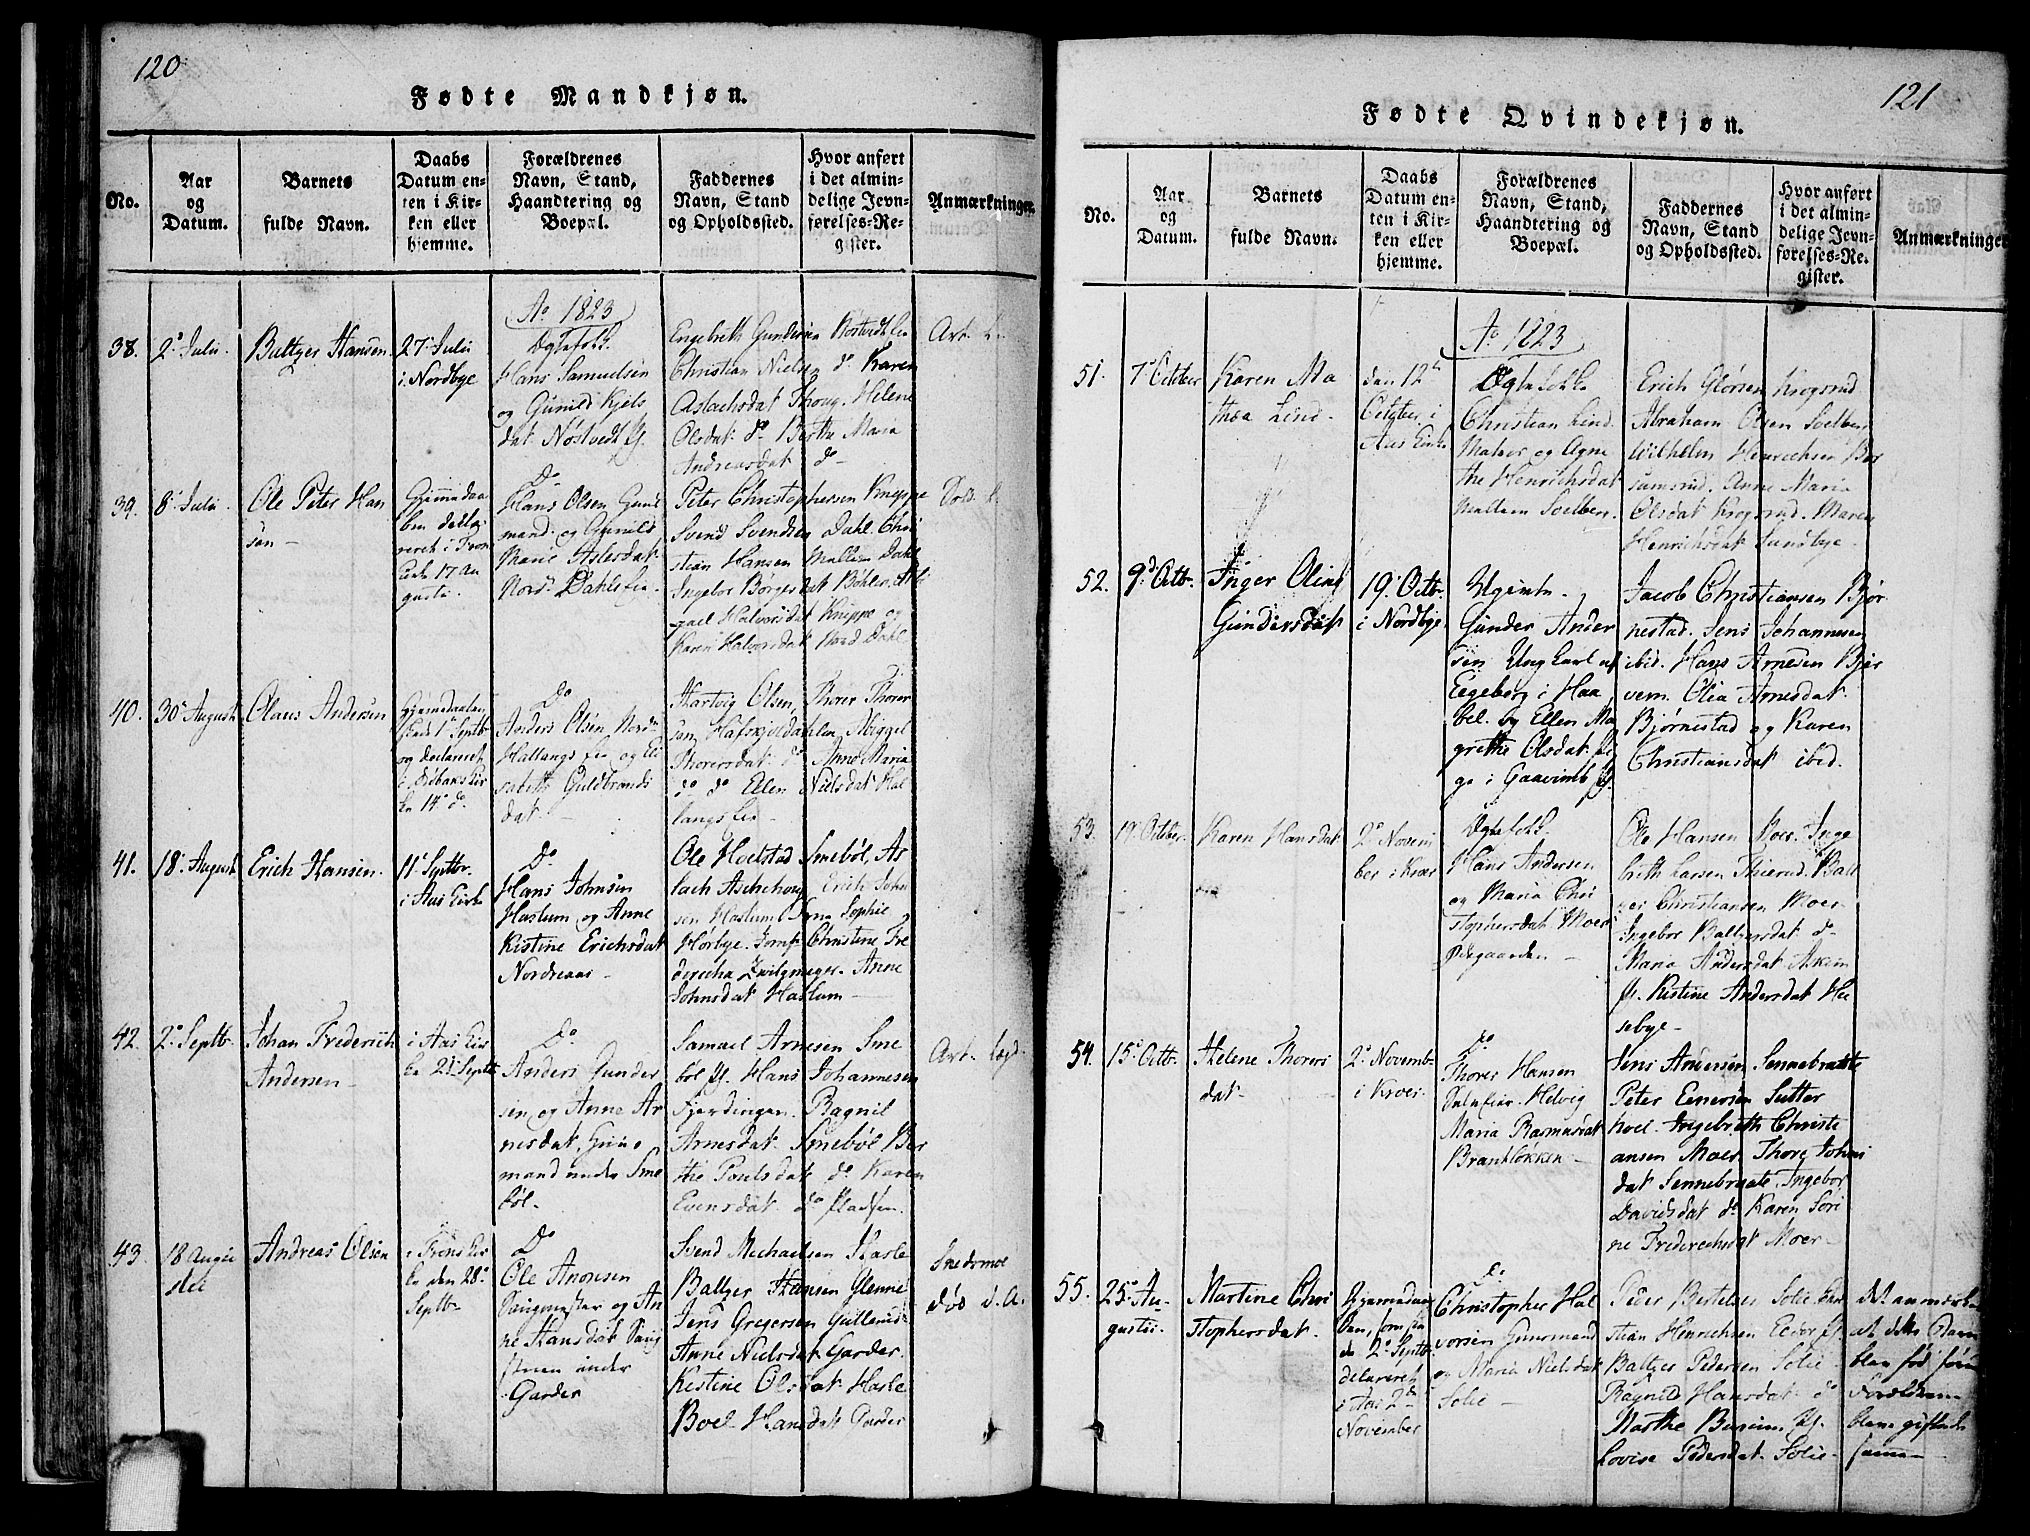 120
Fødte Mandkjøn.
No.
Aar
og
Datum.
Barnets
fulde Navn.
Daabs
Datum en-
ten i Kir-
ken eller
hjemme.
Forældrenes
Navn, Stand,
Haandtering og
Boepæl.
Faddernes
Navn, Stand
og Opholdssted.
Hvor anført
i det almin-
delige Jevn-
førelses-Re-
gister.
Anmærkninger.
Ao 1823
38.
2 Julii.
Baltzer Hansen
27 Julii
i Nordbye
Ægtefolk.
Hans Samuelsen
og Gunild Kjels
dat. Nøstvedt
Engebreth Gundersen
Christian Nielsen do Karen
Aslachsdat Thoug. Helene
Olsdat. do Berthe Maria
Andreasdat do
39.
8 Julii
Ole Peter Han
sen
Hjemmedaa
ben
i Fron
Kirke 17 Au
gusti.
Do
Hans Olsen Huus
mand og Gunild
Marie Aslesdat
Nord Dahls
Peter Christophersen Kneppe
Svend Svendsen Dahl. Chri
stian Hansen Dahl
Ingebor Børgesdat Bøhler.
Halvorsdat Kneppe og
Karen Halvorsdat Nord Dahl
40.
30 August
Claus Andersen
Hjemmedaaben
Septbr
og declareret
14 do
Do
Anders Olsen Nord
Hallangs
og Eli
sabeth Guldbrands
dat.
Hartvig Olsen, Thorer Thorer
sen
Abiggel
Thorersdat do Anne Maria
do do Ellen Nielsdat Hal
langs
41.
18 August
Erich Hansen.
11 Septbr.
i Aas Kirke
Do
Hans Johnsen
Haslum og Anne
Kistine Erichsdat
Nordreaas
Ole Hoelstad Smebøl, As
lach Aschehoug Erich John
sen Haslum Sophie
Hørbye. Jomf. Christine Fre
dericha Zwilgmeyer. Anne
Johnsdat Haslum
42.
2 Septbr
Johan Frederich
Andersen
i Aas Kir
ke 21 Septbr
Do
Anders Gunder
sen og Anne Ar
nesdat, Huus
mand under Sme
bøl.
Samuel Arnesen Sme
bøl Hans Johannesen
Fjerdingen. Ragnil
Arnesdat Smebøl Ber
the Poulsdat do Karen
Evensdat do Pladsen.
43.
18 Augu
stii
Andreas Olsen
i Frons Kir
ke den 28
Septbr
Do
Ole
og An
ne Hansdat
under
Garder
Svend Michaelsen Hasle
Baltzer Hansen Glenne
Jens Gregersen Gulleru
Anne Nielsdat Garder.
Kistine Olsdat Hasle
Boel Hansdat Garder
døs d. A.
121
Fødte Qvindekjøn.
No.
Aar
og
Datum.
Barnets
fulde Navn.
Daabs
Datum en-
ten i Kir-
ken eller
hjemme.
Forældrenes
Navn, Stand,
Haandtering og
Boepæl.
Faddernes
Navn, Stand
og Opholdssted.
Hvor anført
i det almin-
delige Jevn-
førelses-Re-
gister.
Anmærkninger
Ao 1823
51.
7 October
Karen Ma
thea Lind.
den 12
Octobr i
Aas Kirke
Ægtefolk
Christian Lind
og Agne
the Henrichsdat
Solberg.
Erich Glørsen Krogsrud
Abraham Olsen Solberg
Wilhelm Henrichsen
Anne Maria
Olsdat Krogsrud. Maren
Henrichsdat Sundbye.
52.
9 Octb.
Inger Oline
Gundersdat
19 Octbr.
i Nordbye
Ugivte
Gunder Ander
sen Ungkarl af
Eegeberg i Haa
bel. og Ellen Ma
grethe Olsdat Pi
ge i Gaavim
Jacob Christiansen Bjør
nestad. Jens Johannesen
ibid. Hans Arnesen Bjør
Olia Arnesdat.
Bjørnestad og Karen
Christiansdat ibid.
53.
October.
Karen Hansdat
2 Novem
ber i Kroer
Ægtefolk.
Hans Andersen
og Maria Chri
stophersdat Moer
Ole Hansen Moer. Inge
brith Larsen Thierud. Balt
zer Christiansen Moer
Ingebor Baltzersdat do
Maria Andersdat Askim
Kistine Andersdat Hee
sebye
54.
15 Octb.
Helene Thorers
dat.
2 Novemb
i Kroer
Do
Thorer Hansen
Helvig
Maria Rasmusdat
Brantløkken
Jens Andersen Sennebraate
Peter Einersen Sutter
hoel. Ingebreth Christi
ansen Moer. Thore Johns
dat Sennebraate. Ingebor
Davidsdat do Karen Sori
ne Friderechsdat Moer
55.
25 Au-
gustii.
Martine Chri
stophersdat.
Hjemmedaa
ben,
2 Septb
declareret
i Aas 2
November
Do
Christopher Hal
vorsen Huusmand
og Maria Nielsdat
Solie
Peder Bertelsen Solie. Chri
stian Henrichsen
Baltzer Pedersen Solie
Ragnild Hansdat do
Marthe
Lovise Pedersdat Solie
det anmærkes
at dette Barn
blev fød førend
Forældrene
bleve giftede
sammen